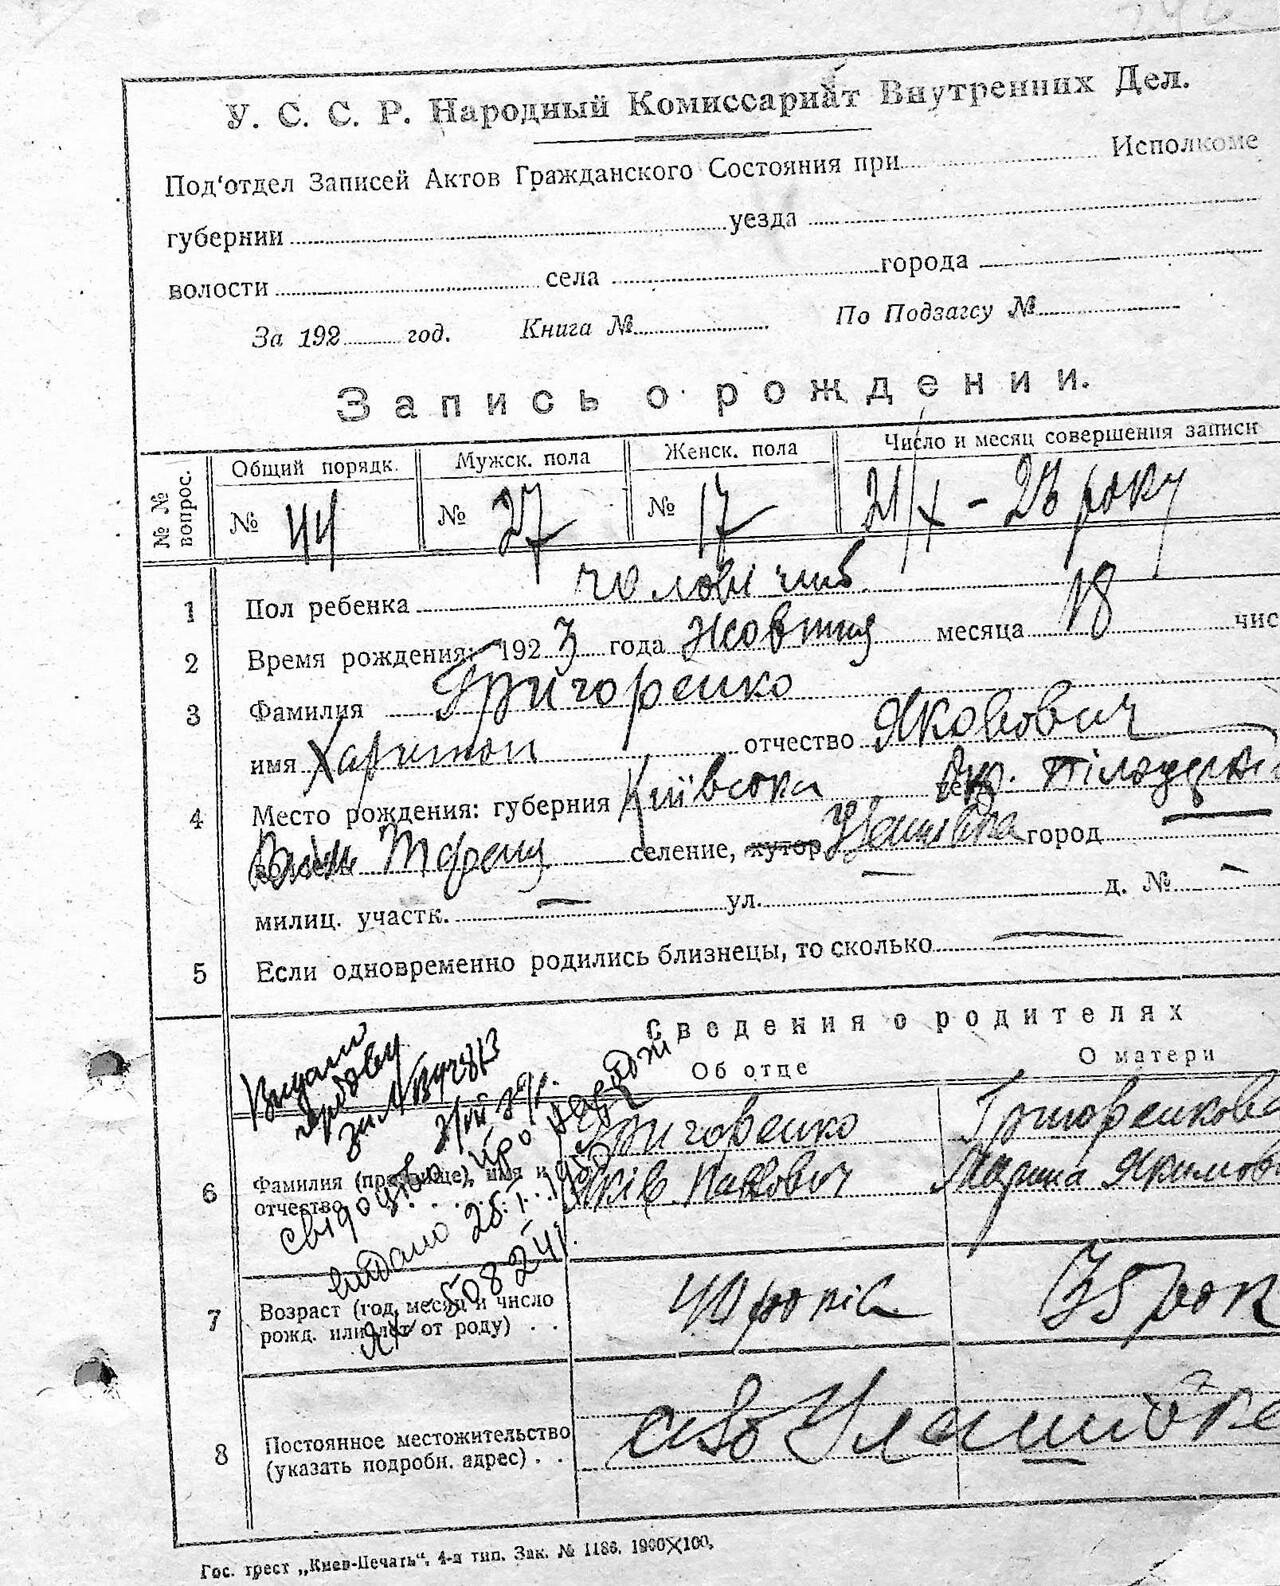 У. С. С. Р. Народный Комиссариат Внутренних Дел.
Под'отдел Записей Актов Гражданского Состояния при Исполкоме
губернии уезда
волости села города
За 192 год. Книга № По Подзагсу №
Запись о рождении.
№ № вопрос. Общий порядк. Мужск. пола Женск. пола Число и месяц совершения записи
№ 44 № 27 № 17 21/X - 23 року
1 Пол ребенка чоловічий
2 Время рождения: 1923 года Жовтня месяца 18 чис
3 Фамилия Григоренко
имя Харитон отчество Якович
4 Место рождения: губерния Київська
селение, хутор город
милиц. участк. — ул. д. № —
5 Если одновременно родились близнецы, то сколько —
Сведения о родителях
Об отце О матери
Видано
6 Фамилия (прозвище), имя и отчество Григоренко Яків Павлович Григоренкова Марина Якимов
свідоцтво про народж
видано 28.I.195
50824
7 Возраст (год, месяц и число рожд. или лет от роду) . . 40 років 35 рок
8 Постоянное местожительство (указать подробн. адрес) . .
Гос. трест „Киев-Печать", 4-я тип. Зак. № 1186. 1900X100.